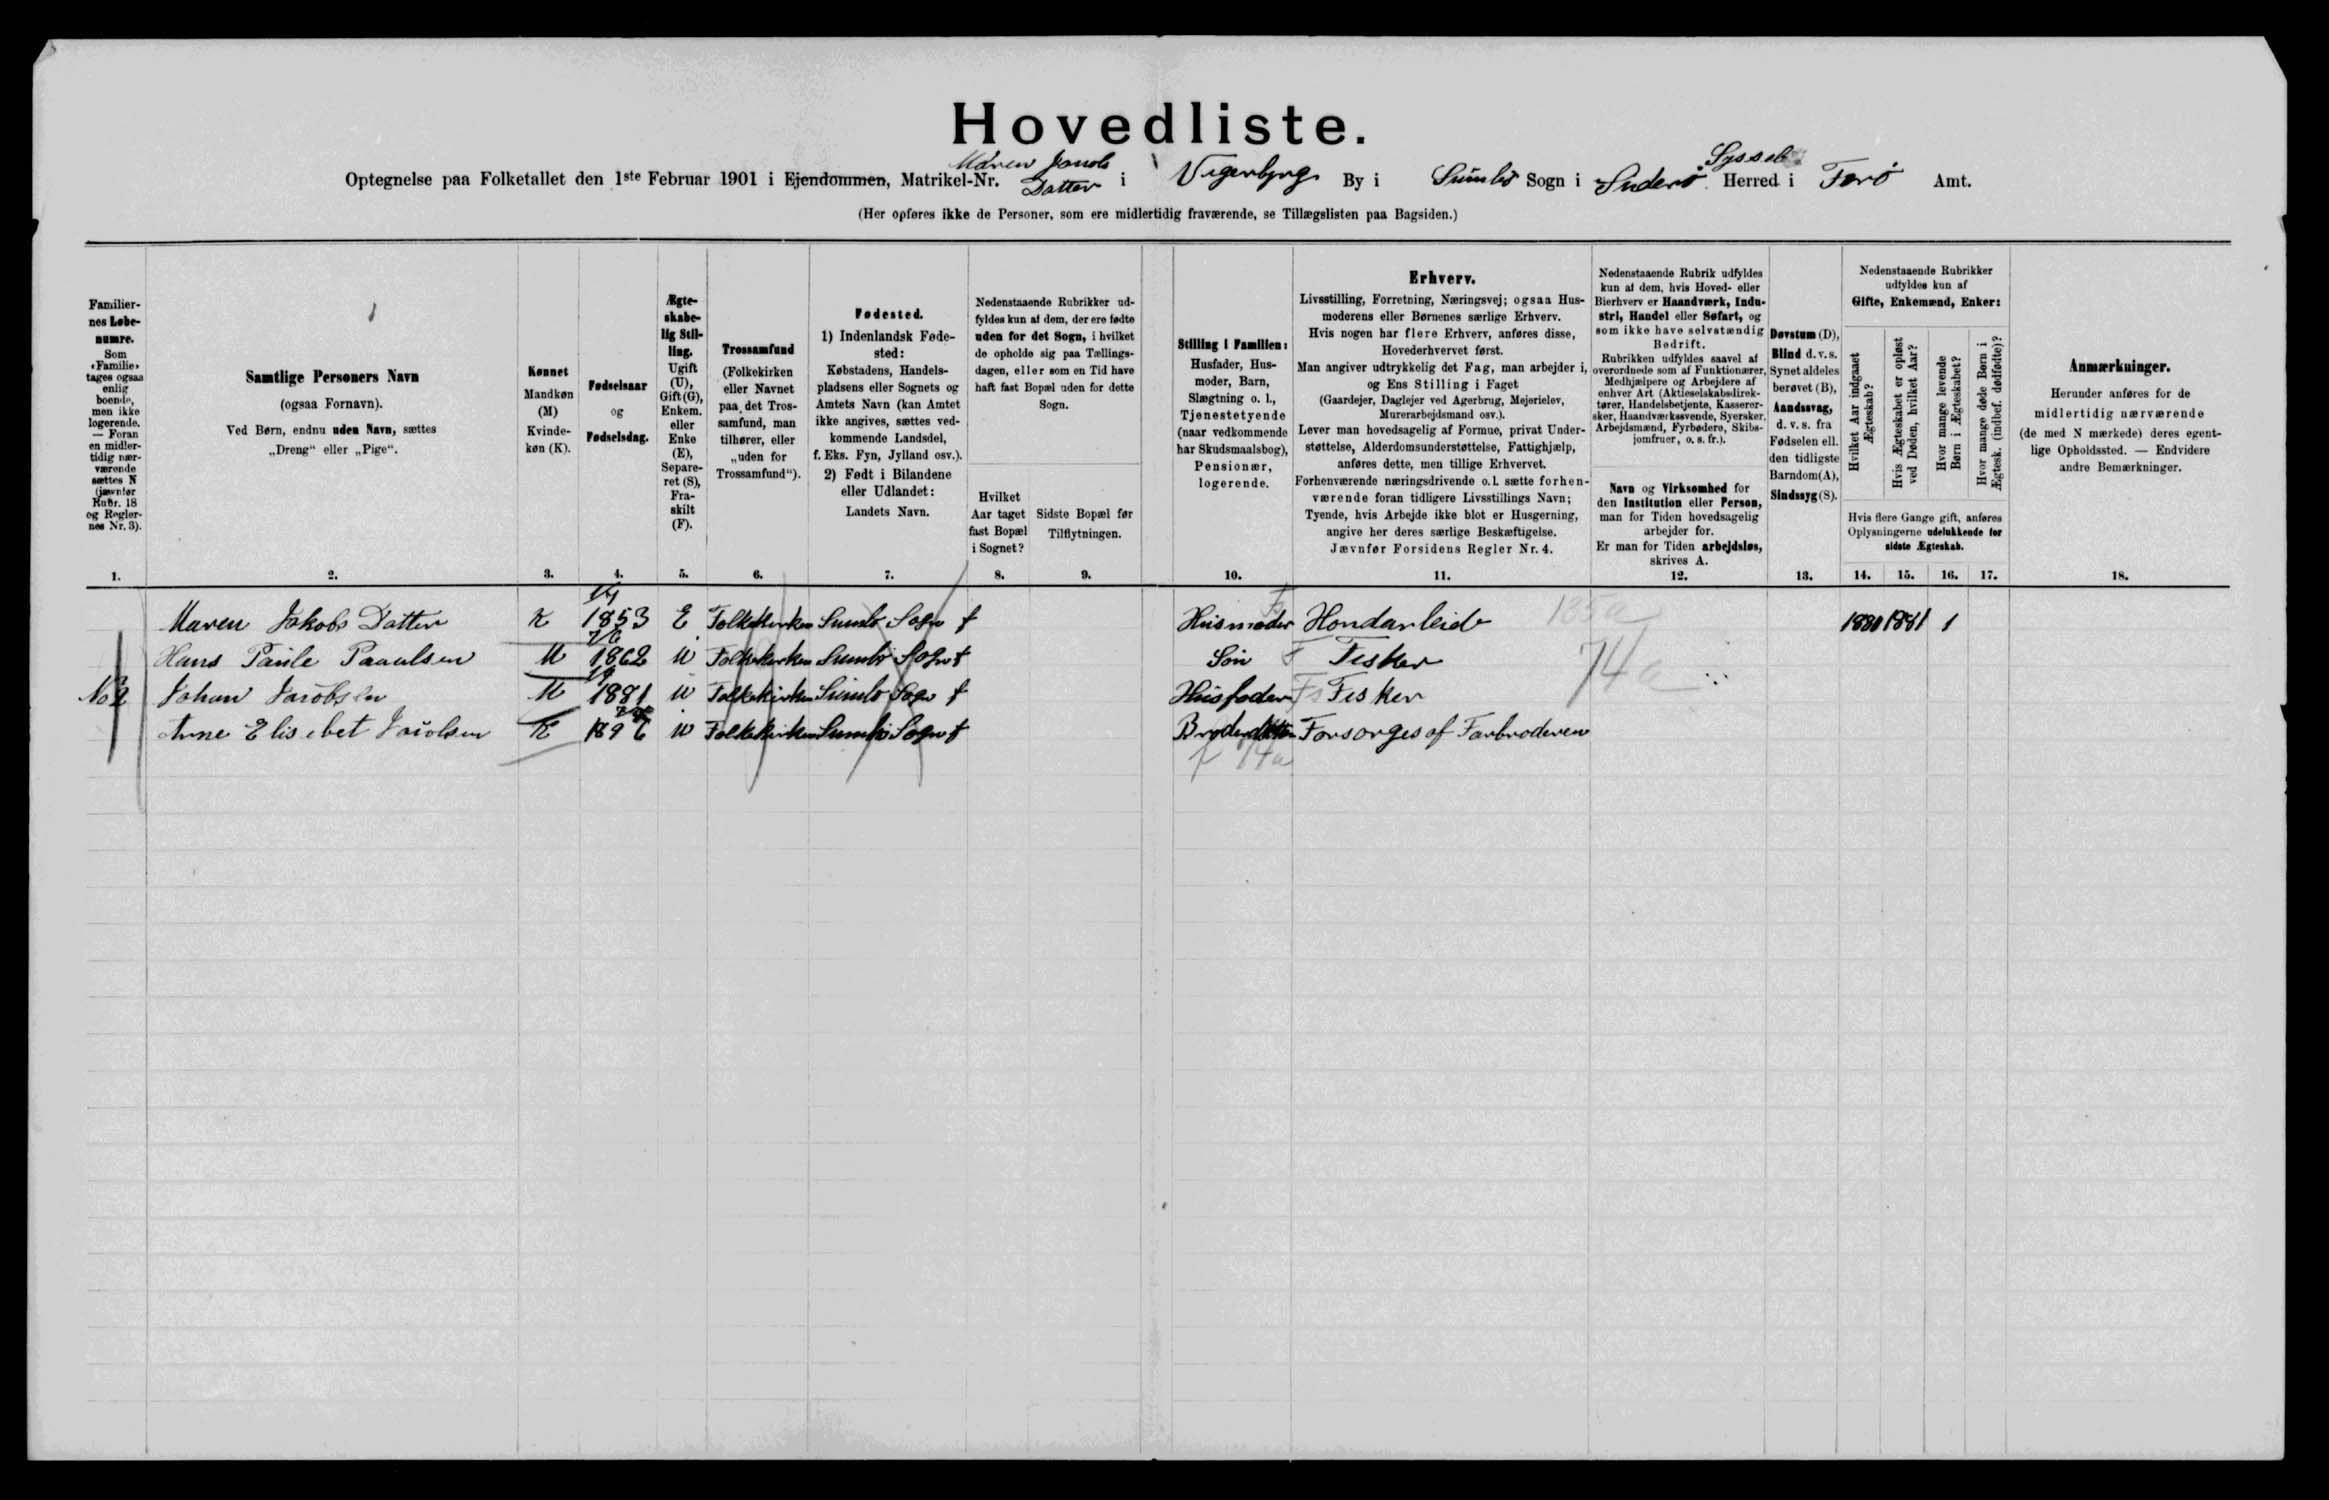 Hovedliste.
Optegnelse paa Folketallet den 1ste Februar 1901 i Ejendommen, Matrikel-Nr. Maren Jacobs Datter i Vigerbyrg By i Sumbö Sogn i Suderö Syssel Herred i Færö Amt.
(Her opføres ikke de Personer, som ere midlertidig fraværende, se Tillægslisten paa Bagsiden.)
Familiernes Løbenumre.
Som «Familie» tages ogsaa enlig boende, men ikke logerende. — Foran en midlertidig nærværende sættes N (jævnfør Rubr. 18 og Reglernes Nr. 3).
1.
Samtlige Personers Navn
(ogsaa Fornavn).
Ved Børn, endnu uden Navn, sættes
„Dreng“ eller „Pige“.
2.
Kønnet
Mandkøn (M)
Kvindekøn (K).
3.
Fødselsaar
og
Fødselsdag.
4.
Ægteskabelig Stilling.
Ugift (U), Gift (G), Enkem. eller Enke (E), Separeret (S), Fraskilt (F).
5.
Trossamfund
(Folkekirken eller Navnet paa det Trossamfund, man tilhører, eller „uden for Trossamfund“).
6.
Fødested.
1) Indenlandsk Fødested:
Købstadens, Handelspladsens eller Sognets og Amtets Navn (kan Amtet ikke angives, sættes vedkommende Landsdel, f. Eks. Fyn, Jylland osv.).
2) Født i Bilandene eller Udlandet:
Landets Navn.
7.
Nedenstaaende Rubrikker udfyldes kun af dem, der ere fødte uden for det Sogn, i hvilket de opholde sig paa Tællingsdagen, eller som en Tid have haft fast Bopæl uden for dette Sogn.
Hvilket Aar taget fast Bopæl i Sognet?
8.
Sidste Bopæl før Tilflytningen.
9.
Stilling i Familien:
Husfader, Husmoder, Barn, Slægtning o. l., Tjenestetyende (naar vedkommende har Skudsmaalsbog), Pensionær, logerende.
10.
Erhverv.
Livsstilling, Forretning, Næringsvej; ogsaa Husmoderens eller Børnenes særlige Erhverv.
Hvis nogen har flere Erhverv, anføres disse, Hovederhvervet først.
Man angiver udtrykkelig det Fag, man arbejder i, og Ens Stilling i Faget
(Gaardejer, Daglejer ved Agerbrug, Mejerielev, Murerarbejdsmand osv.).
Lever man hovedsagelig af Formue, privat Understøttelse, Alderdomsunderstøttelse, Fattighjælp, anføres dette, men tillige Erhvervet.
Forhenværende næringsdrivende o. l. sætte forhenværende foran tidligere Livsstillings Navn;
Tyende, hvis Arbejde ikke blot er Husgerning, angive her deres særlige Beskæftigelse.
Jævnfør Forsidens Regler Nr. 4.
11.
Nedenstaaende Rubrik udfyldes kun af dem, hvis Hoved- eller Bierhverv er Haandværk, Industri, Handel eller Søfart, og som ikke have selvstændig Bedrift.
Rubrikken udfyldes saavel af overordnede som af Funktionærer, Medhjælpere og Arbejdere af enhver Art (Aktieselskabsdirektører, Handelsbetjente, Kasserersker, Haandværkssvende, Syersker, Arbejdsmænd, Fyrbødere, Skibsjomfruer, o. s. fr.).
Navn og Virksomhed for den Institution eller Person, man for Tiden hovedsagelig arbejder for.
Er man for Tiden arbejdsløs, skrives A.
12.
Døvstum (D),
Blind d. v. s. Synet aldeles berøvet (B),
Aandssvag, d. v. s. fra Fødselen ell. den tidligste Barndom (A),
Sindssyg (S).
13.
Nedenstaaende Rubrikker udfyldes kun af
Gifte, Enkemænd, Enker:
Hvilket Aar indgaaet Ægteskab?
Hvis Ægteskabet er opløst ved Døden, hvilket Aar?
Hvor mange levende Børn i Ægteskabet?
Hvor mange døde Børn i Ægtesk. (indbef. dødfødte)?
Hvis flere Gange gift, anføres Oplysningerne udelukkende for sidste Ægteskab.
14. 15. 16. 17.
Anmærkninger.
Herunder anføres for de midlertidig nærværende (de med N mærkede) deres egentlige Opholdssted. — Endvidere andre Bemærkninger.
18.
Maren Jakobs Datter K 1853 E Folkekirken Sumbö Sogn f Husmoder Hondarleid 135a 1880 1881 1
Hans Paule Paaulsen M 1862 U Folkekirken Sumbö Sogn f Sön Fisker 74a
No 2 Johan Jacobsen M 1881 U Folkekirken Sumbö Sogn f Husfader Fs Fisker
Anne Elisebet Jacobsen K 1896 U Folkekirken Sumbö Sogn f Broderdatter Forsorges af Farbroderen
f 74a